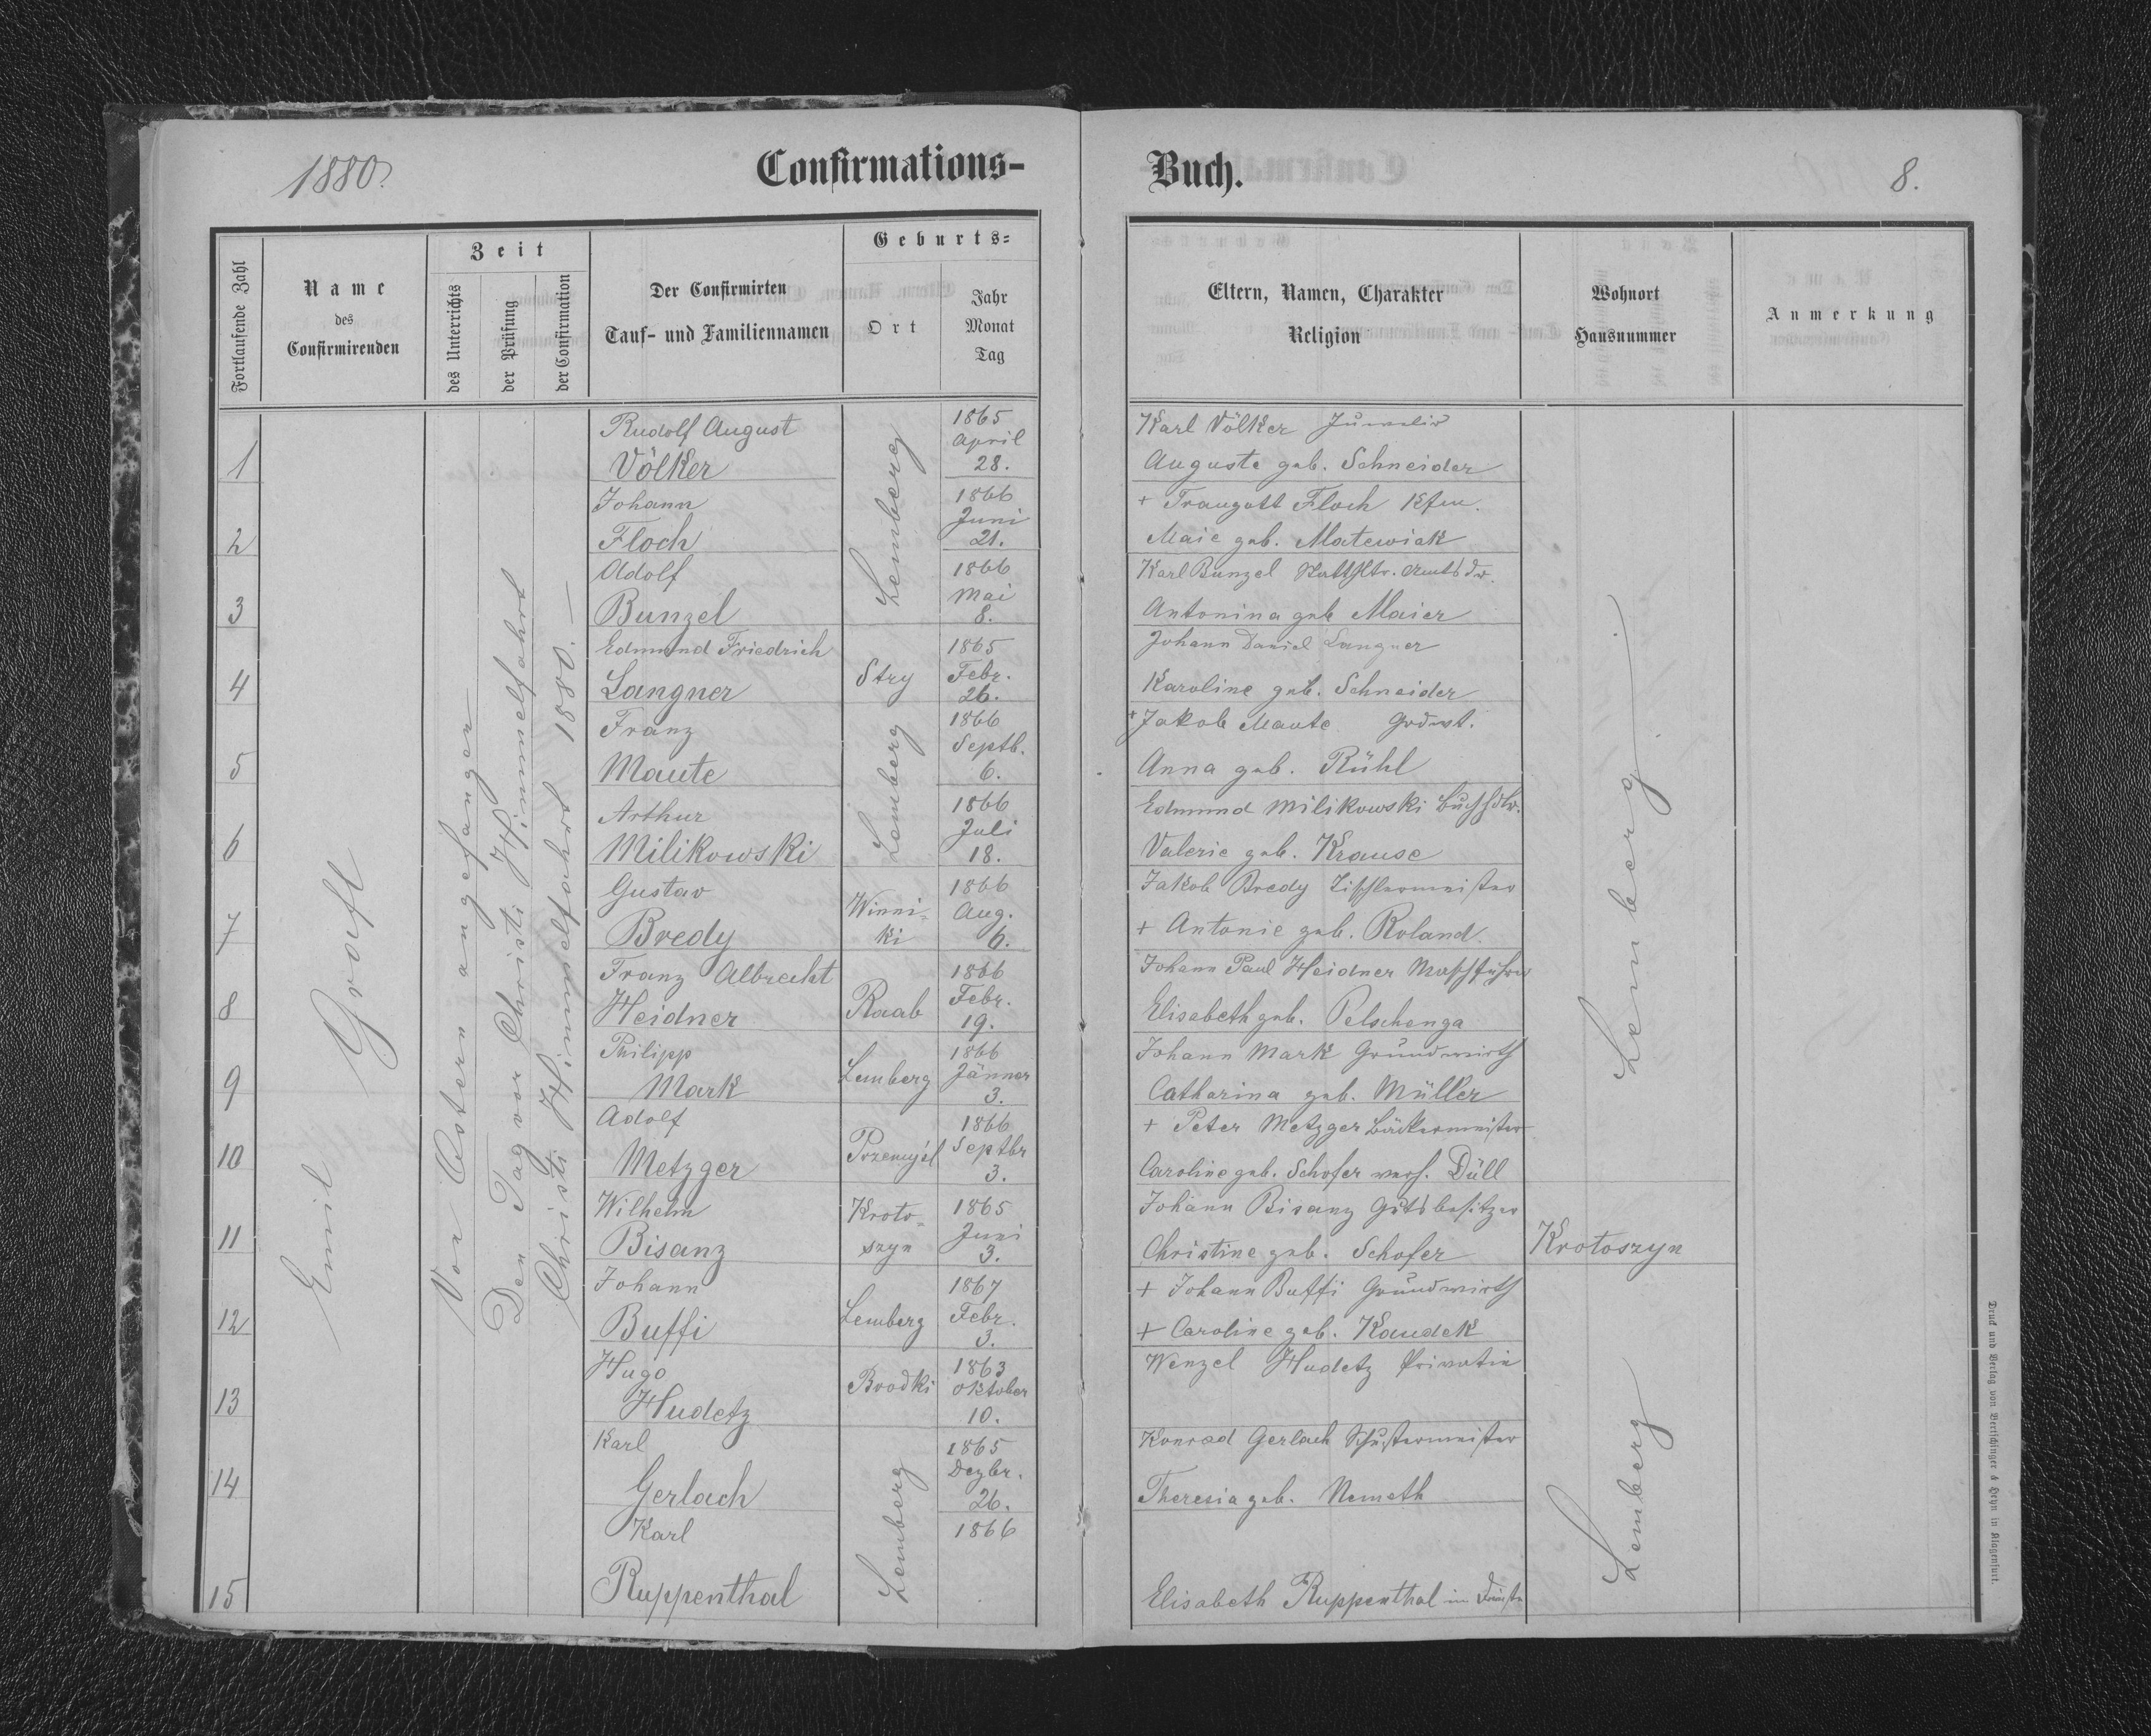 1880.
Confirmations-
Buch.
8.
Fortlaufende Zahl
Name
des
Confirmirenden
Zeit
des Unterrichts
der Prüfung
der Confirmation
Der Confirmirten
Tauf- und Familiennamen
Geburts-
Ort
Jahr
Monat
Tag
Eltern, Namen, Charakter
Religion
Wohnort
Hausnummer
Anmerkung
Emil Groß
Von Ostern angefangen
Den Tag vor Christi Himmelfahrt
Christi Himmelfahrt 1880. —
1
Rudolf August
Völker
Lemberg
1865
April
28.
Karl Völker Juwelir
Auguste geb. Schneider
Lemberg.
2
Johann
Floch
1866
Juni
21.
+ Traugott Floch Kfm.
Maie geb. Matewiak
3
Adolf
Bunzel
1866
Mai
8.
Karl Bunzel
Antonina geb Maier
4
Edmund Friedrich
Langner
Stry
1865
Febr.
26.
Johann Daniel Langner
Karoline geb. Schneider
5
Franz
Maute
Lemberg
1866
Septb.
6.
+ Jakob Maute Grdwt.
Anna geb. Rühl
6
Arthur
Milikowski
1866
Juli
18.
Edmund Milikowski Buchhdlr.
Valerie geb. Krause
7
Gustav
Bredy
Winni-
ki
1866
Aug.
6.
Jakob Bredy Tischlermeister
+ Antonie geb. Roland.
8
Franz Albrecht
Heidner
Raab
1866
Febr.
19.
Johann Paul Heidner Maschführer
Elisabeth geb. Pelschenga
9
Philipp
Mark
Lemberg
1866
Jänner
3.
Johann Mark Grundwirth
Catharina geb. Müller
10
Adolf
Metzger
Przemyśl
1866
Septbr
3.
+ Peter Metzger Bäckermeister
Caroline geb. Schofer verh. Düll
11
Wilhelm
Bisanz
Kroto-
szyn
1865
Juni
3.
Johann Bisanz Gutsbesitzer
Christine geb. Schofer
Krotoszyn
12
Johann
Buffi
Lemberg
1867
Febr.
3.
+ Johann Buffi Grundwirth
+ Caroline geb. Kaudek
Lemberg
13
Hugo
Hudetz
Brodki
1863
Oktober
10.
Wenzel Hudetz
14
Karl
Gerlach
Lemberg
1865
Dezbr.
26.
Konrad Gerlach Schustermeister
Theresia geb. Nemeth
15
Karl
Ruppenthal
1866
Elisabeth Ruppenthal im Dienste
Druck und Verlag von Bertschinger & Heyn in Klagenfurt.